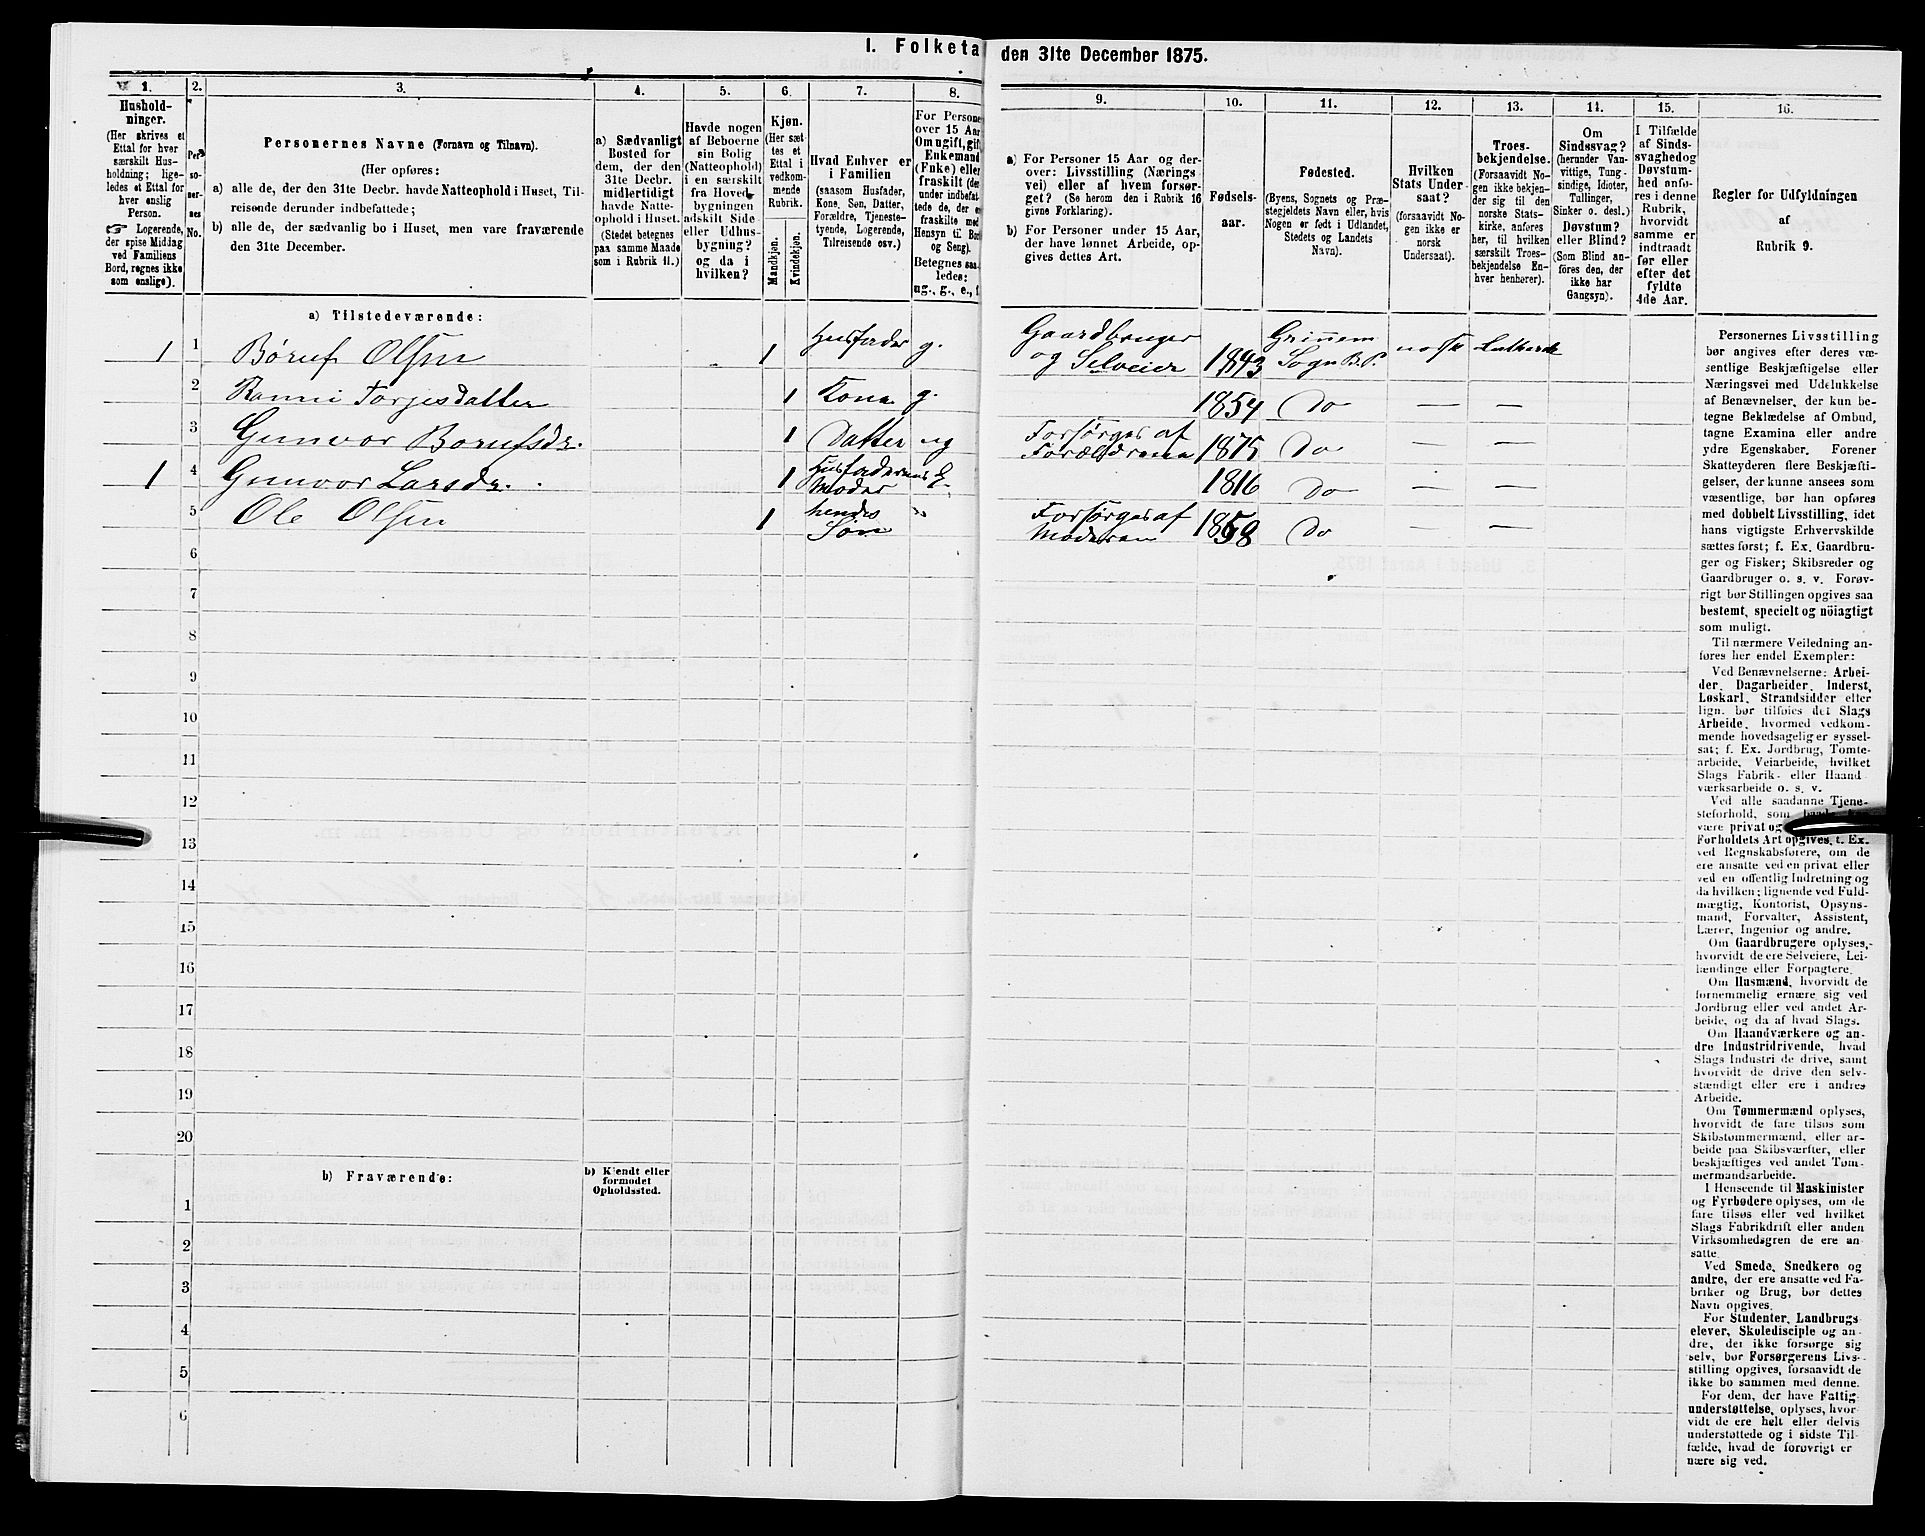 I. Folketa den 31te December 1875.
1.
Hushold-
ninger.
(Her skrives et
Ettal for hver
særskilt Hus-
holdning; lige-
ledes et Ettal for
hver enslig
Person.
☞ Logerende,
der spise Middag
ved Familiens
Bord, regnes ikke
som enslige).
2.
Per-
so-
ner-
nes
No.
3.
Personernes Navne (Fornavn og Tilnavn).
(Her opføres:
a) alle de, der den 31te Decbr. havde Natteophold i Huset, Til-
reisende derunder indbefattede;
b) alle de, der sædvanlig bo i Huset, men vare fraværende
den 31te December.
4.
a) Sædvanligt
Bosted for
dem, der den
31te Decbr.
midlertidigt
havde Natte-
ophold i Huset.
(Stedet betegnes
paa samme Maade
som i Rubrik 11.)
5.
Havde nogen
af Beboerne
sin Bolig
(Natteophold)
i en særskilt
fra Hoved-
bygningen
adskilt Side-
eller Udhus-
bygning?
og da i
hvilken?
6.
Kjøn.
(Her sæt-
tes et
Ettal i
vedkom-
mende
Rubrik.
Mandkjøn.
Kvindekjøn.
7.
Hvad Enhver er
i Familien
(saasom Husfader,
Kone, Søn, Datter,
Forældre, Tjeneste-
tyende, Logerende,
Tilreisende osv.)
8.
For Persone
over 15 Aar
Om ugift, gift
Enkemand
(Enke) eller
fraskilt (der
under indbefat-
tede de, der er
fraskilte med
Hensyn til Bord
og Seng).
Betegnes saa-
ledes:
ug., g., e., f.
9.
a) For Personer 15 Aar og der-
over: Livsstilling (Nærings-
vei) eller af hvem forsør-
get? (Se herom den i Rubrik 16
givne Forklaring).
b) For Personer under 15 Aar,
der have lønnet Arbeide, op-
gives dettes Art.
10.
Fødsels-
aar.
11.
Fødested.
(Byens, Sognets og Præ-
stegjeldets Navn eller, hvis
Nogen er født i Udlandet,
Stedets og Landets
Navn).
12.
Hvilken
Stats Under-
saat?
(forsaavidt No-
gen ikke er
norsk
Undersaat).
13.
Troes-
bekjendelse.
(Forsaavidt No-
gen ikke bekjen-
der sig til den
norske Stats-
kirke, anføres
her, til hvilken
særskilt Troes-
bekjendelse En-
hver henhører).
14.
Om
Sindssvag?
(herunder Van-
vittige, Tung-
sindige, Idioter,
Tullinger,
Sinker o. desl.)
Døvstum?
eller Blind?
(Som Blind an-
føres den, der
ikke har
Gangsyn).
15.
I Tilfælde
af Sinds-
svaghed og
Døvstum-
hed anfø-
res i denne
Rubrik,
hvorvidt
samme er
indtraadt
før eller
efter det
fyldte
4de Aar.
16.
Regler for Udfyldningen
af
Rubrik 9.
a) Tilstedeværende:
1 1 Børuf Olsen 1 Husfader g. Gaardbruger og Selveier 1843 Grimem Sogn B.P. norsk Lutherik
2 Ranni Torgesdatter 1 Kone g. 1854 Do — —
3 Gunvor Borufsdr. 1 Datter ug Forsørges af Forældrene 1875 Do — —
1 4 Gunvor Larsdr. 1 Husfaderens Moder E. 1816 Do — —
5 Ole Olsen 1 hendes Søn " Forsørges af Moderen 1858 Do — —
6
7
8
9
10
11
12
13
14
15
16
17
18
19
20
b) Fraværende:
b) Kjendt eller
formodet
Opholdssted.
1
2
3
4
5
6
Personernes Livsstilling
bør angives efter deres væ-
sentlige Beskjæftigelse eller
Næringsvei med Udelukkelse
af Benævnelser, der kun be-
tegne Beklædelse af Ombud,
tagne Examina eller andre
ydre Egenskaber. Forener
Skatteyderen flere Beskjæfti-
gelser, der kunne ansees som
væsentlige, bør han opføres
med dobbelt Livsstilling, idet
hans vigtigste Erhvervskilde
sættes først; f. Ex. Gaardbru-
ger og Fisker; Skibsreder og
Gaardbruger o. s. v. Forøv-
rigt bør Stillingen opgives saa
bestemt, specielt og nöiagtigt
som muligt.
Til nærmere Veiledning an-
føres her endel Exempler:
Ved Benævnelserne: Arbei-
der, Dagarbeider, Inderst,
Løskarl, Strandsidder eller
lign. bør tilføies det Slags
Arbeide, hvormed vedkom-
mende hovedsagelig er syssel-
sat; f. Ex. Jordbrug, Tomte-
arbeide, Veiarbeide, hvilket
Slags Fabrik- eller Haand-
værksarbeide o. s. v.
Ved alle saadanne Tjene-
steforhold, som
være privat og
Forholdets Art opgives, t. Ex.
ved Regnskabsførere, om de
ere ansatte ved en privat eller
ved en offentlig Indretning og
da hvilken; lignende ved Fuld-
mægtig, Kontorist, Opsyns-
mand, Forvalter, Assistent,
Lærer, Ingeniør og andre.
Om Gaardbrugere oplyses,
hvorvidt de ere Selveiere, Lei-
lændinge eller Forpagtere.
Om Husmænd, hvorvidt de
fornemmelig ernære sig ved
Jordbrug eller ved andet Ar-
beide, og da af hvad Slags.
Om Haandværkere og an-
dre Industridrivende, hvad
Slags Industri de drive, samt
hvorvidt de drive den selv-
stændigt eller ere i andres
Arbeide.
Om Tømmermænd oplyses,
hvorvidt de fare tilsøs som
Skibstømmermænd, eller ar-
beide paa Skibsværfter, eller
beskjæftiges ved andet Tøm-
mermandsarbeide.
I Henseende til Maskinister
og Fyrbødere oplyses, om de
fare tilsøs eller ved hvilket
Slags Fabrikdrift eller anden
Virksomhedsgren de ere an-
satte.
Ved Smede, Snedkere og
andre, der ere ansatte ved Fa-
briker og Brug, bør dettes
Navn opgives.
For Studenter, Landbrugs-
elever, Skoledisciple og an-
dre, der ikke forsørge sig
selv, bør Forsørgerens Livs-
stilling opgives, forsaavidt de
ikke bo sammen med denne.
For dem, der have Fattig-
understøttelse, oplyses, hvor-
vidt de ere helt eller delvis
understøttede og i sidste Til-
fælde, hvad de forøvrigt er-
nære sig ved.